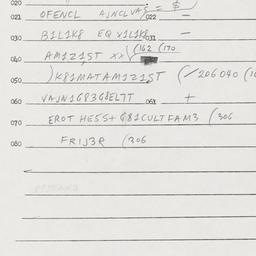 020 = $
021 OFENCL AJNCLVAS 022 —
030 B1L1K8 EQ V1L1K8 031 —
040 AM1Z1ST xx (162 (170
050 )K81MATAM1Z1ST (/206040 (10
060 VAJN1G83G8ELTT 061 +
070 EROT HESS+ G81CULTFAM3 (306
080 FRIJ3R (306